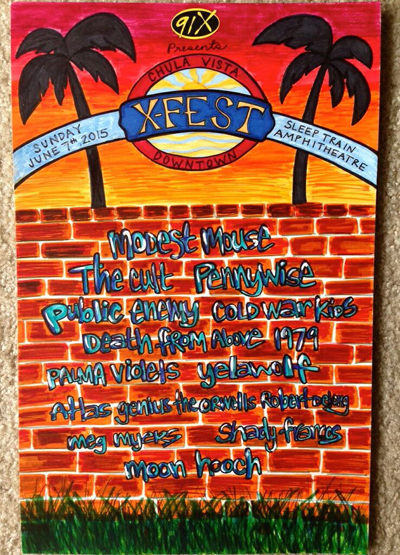 91X
Presents
CHULA VISTA
X-FEST
DOWNTOWN
SUNDAY
JUNE 7TH 2015
SLEEP TRAIN
AMPHITHEATRE
modest mouse
The cult Pennywise
Public enemy COLD war kids
Death from Above 1979
PALMA VIOLETS yelawolf
Atlas genius the orwells Robert DeLong
meg myers Shady francos
moon hooch